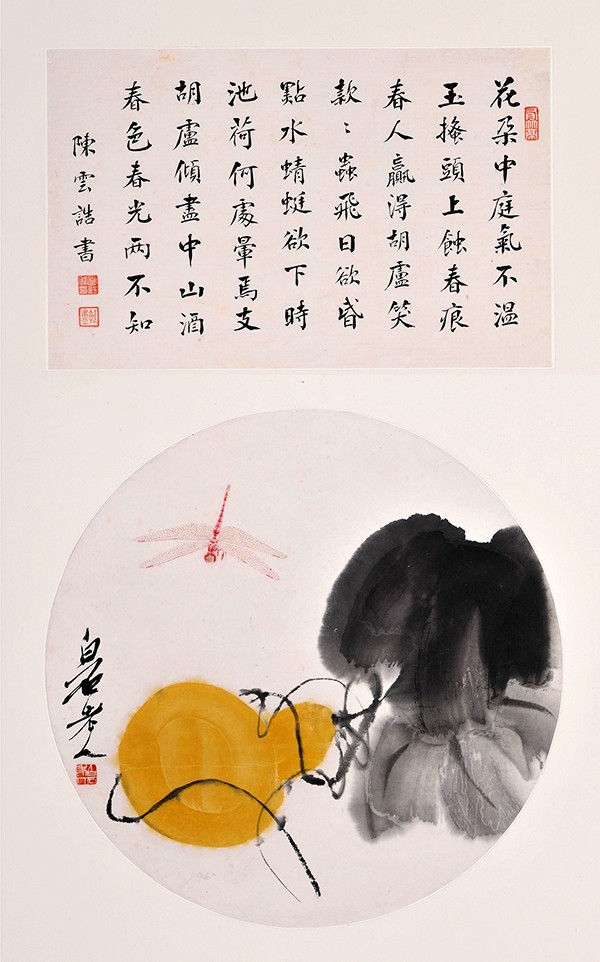 花朵中庭氣不溫
玉搔頭上蝕春痕
春人贏得胡盧笑
款〻蟲飛日欲昏
點水蜻蜓欲下時
池荷何處暈焉支
胡盧傾盡中山酒
春色春光两不知
陳雲誥書
白石老人